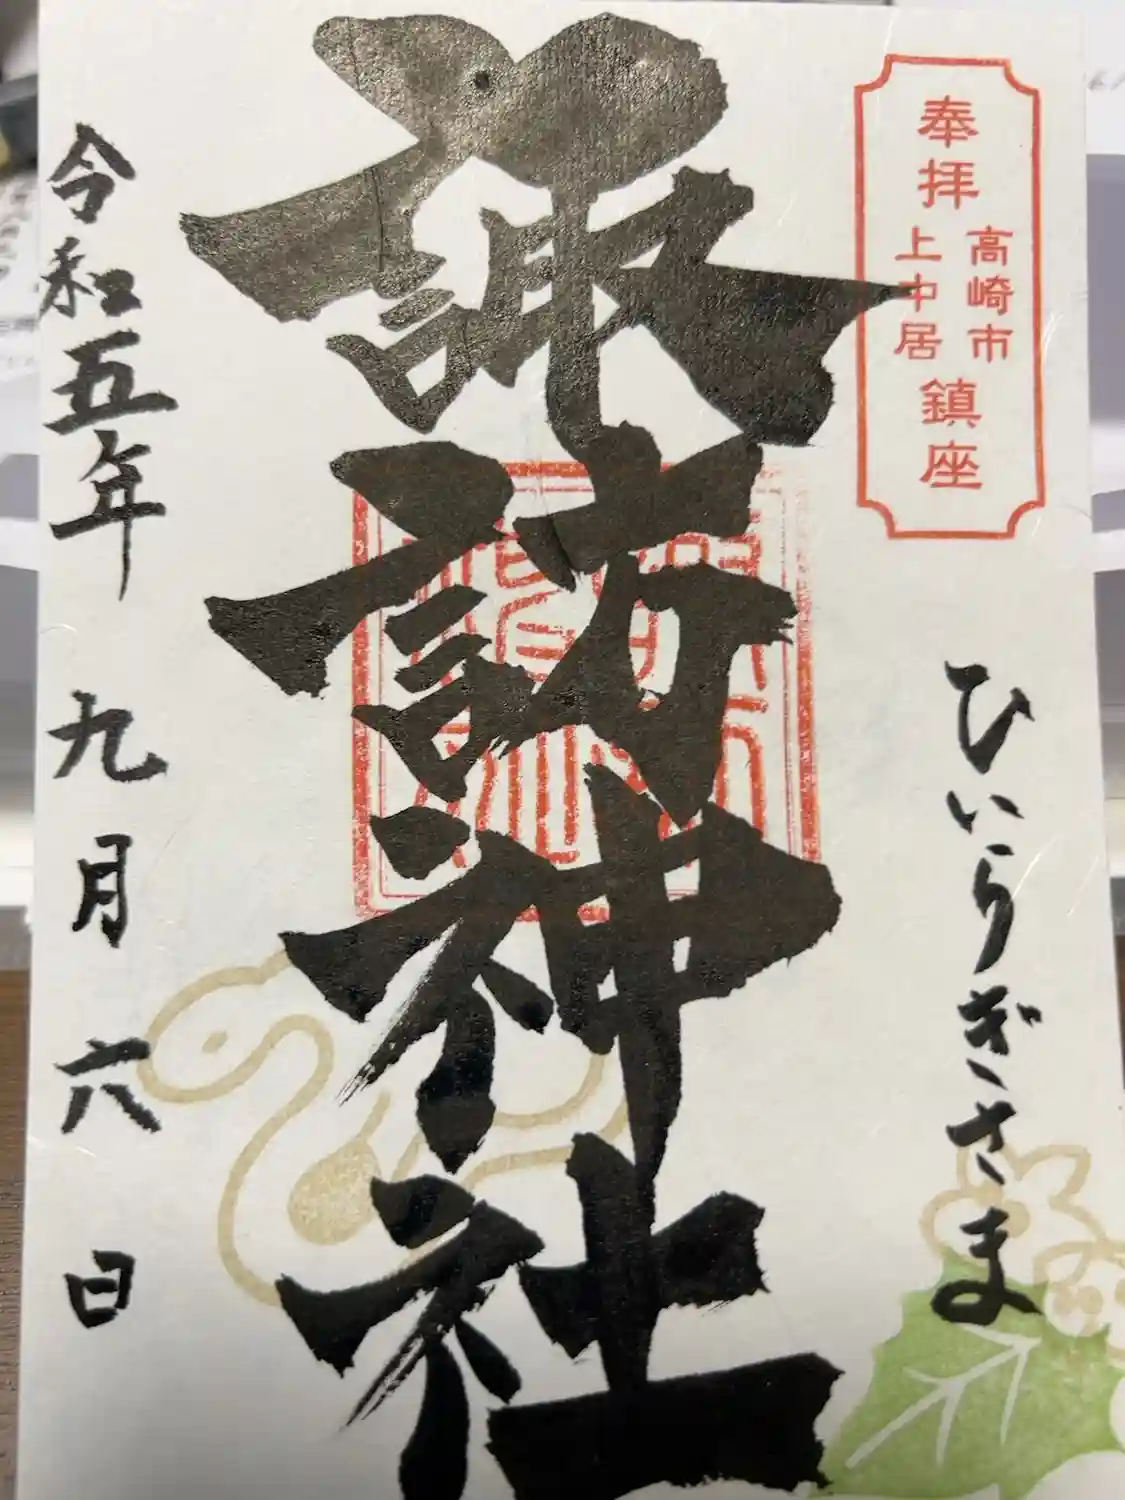 奉拝
高崎市
上中居
鎮座
ひいらぎさま
諏訪神社
令和五年九月六日